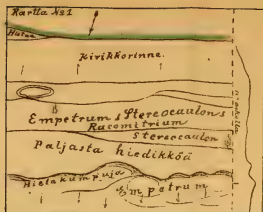 Kartta № 1
Hietaa
Kirikkorinne.
Empetrum & Stereocaulon &
Racomitrium
Stereocaulon
Paljasta hiedikköä
Hietakumpuja
Empetrum